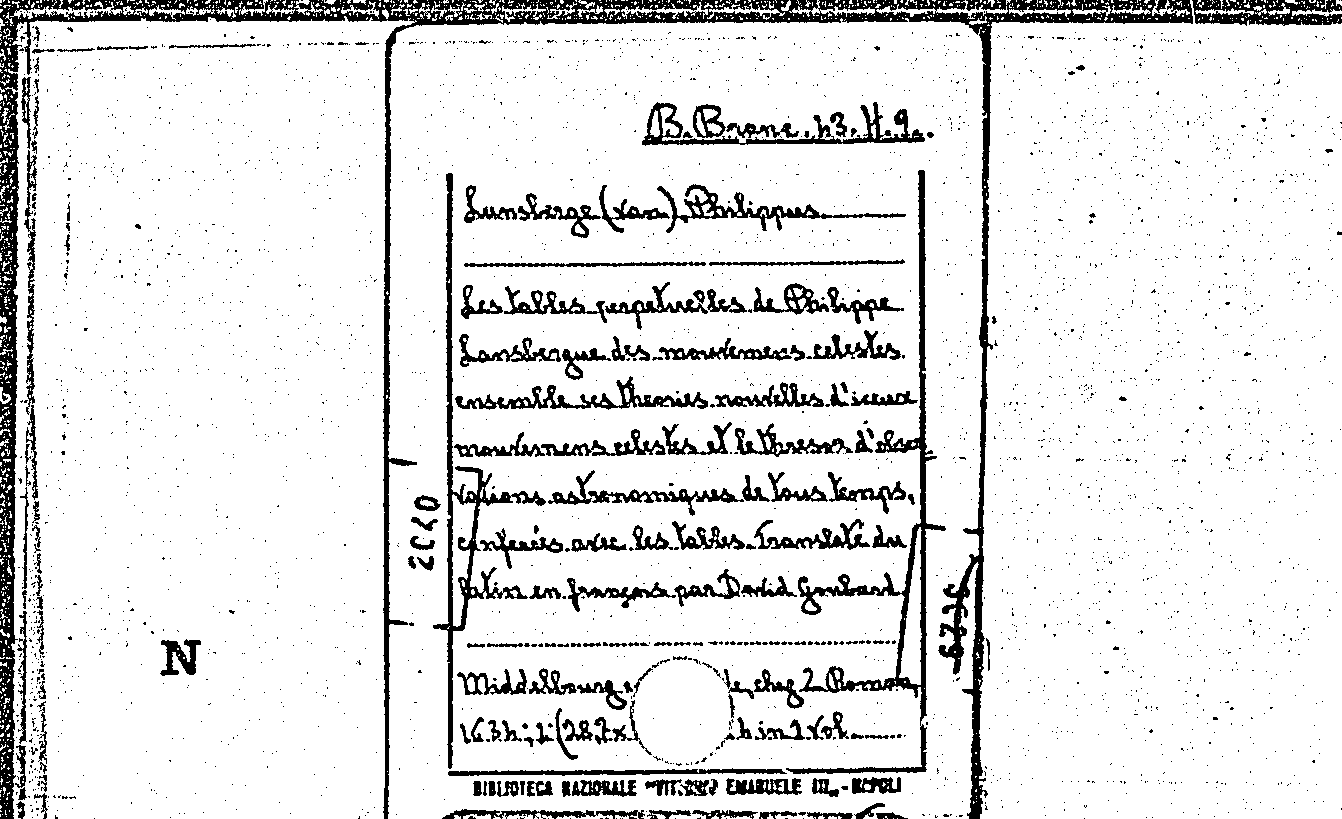 B. Branc. 43. H. 9.
Lansberge (van), Philippus
Les tables perpetuelles de Philippe
Lansbergue des mouvemens celestes
ensemble ses theories nouvelles d'iceux
mouvemens celestes et le thresor d'obser
vations astronomiques de tous temps,
conferées avec les tables. Translaté du
latin en françois par David Goubard.
2CRO
N
Middelbourg chez Z. Roman,
in 1 vol.
BIBLIOTECA NAZIONALE "VITTORIO EMANUELE III" - NAPOLI